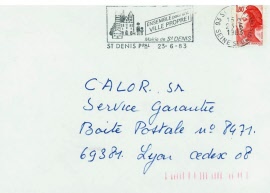 ENSEMBLE
VILLE PROPRE!
Mairie de St DENIS
ST DENIS PPAL 23-6-83
93 ST
SEINE
CALOR. SA
Service Garantie
Boite Postale n° 8471.
69381. Lyon cedex 08